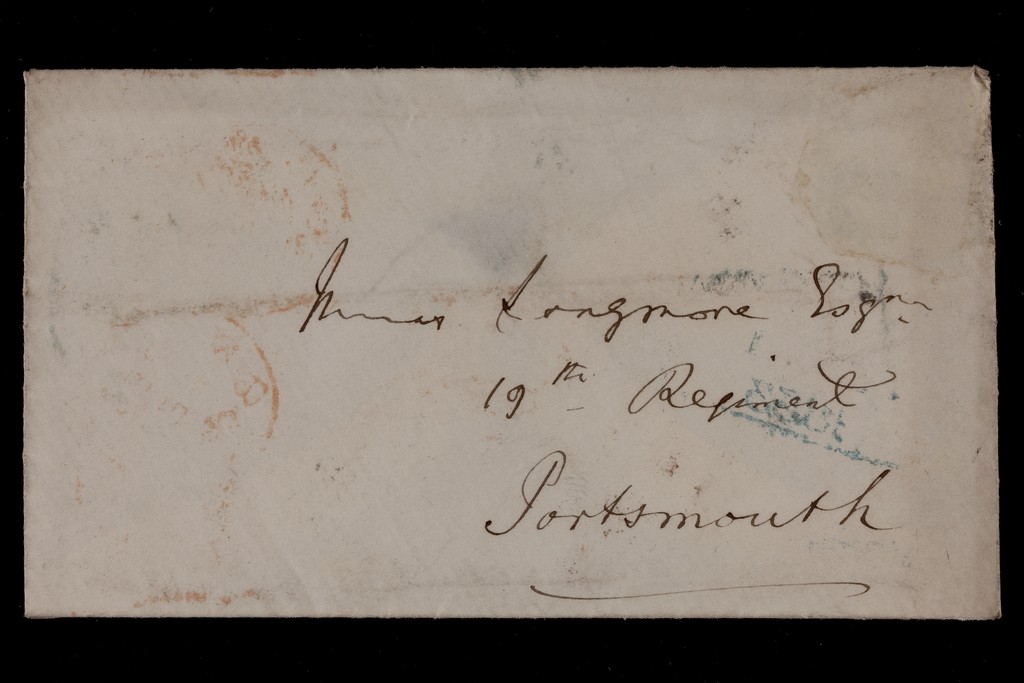 Thomas Longmore Esqre
19th Regiment
Portsmouth